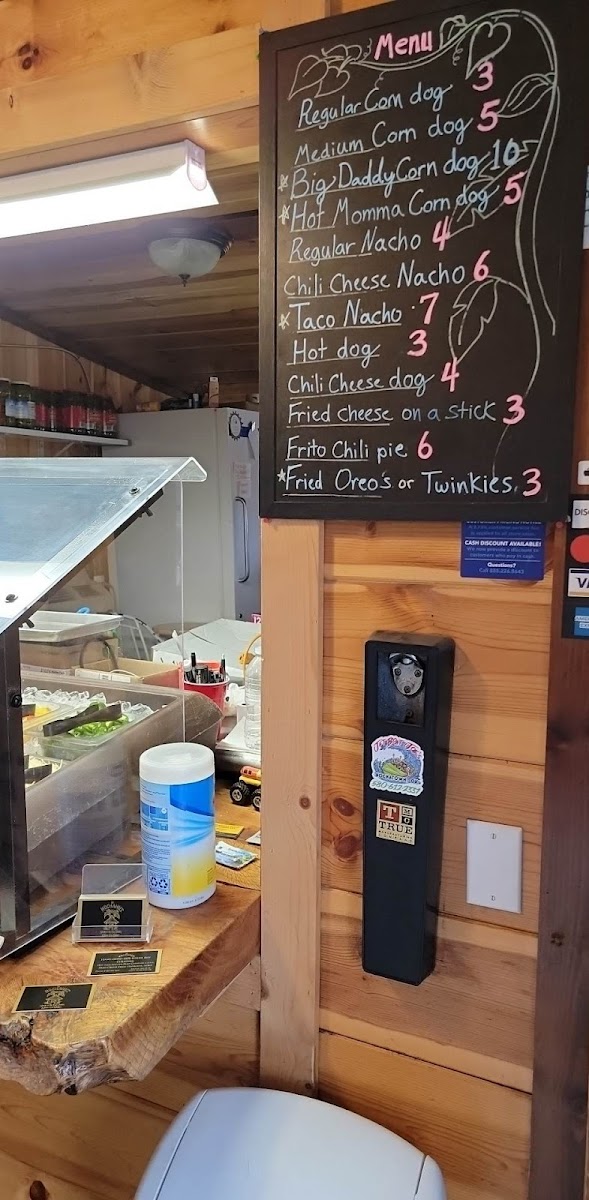 Menu
Regular Corn dog 3
Medium Corn dog 5
Big Daddy Corn dog 10
Hot Momma Corn dog 5
Regular Nacho 4
Chili Cheese Nacho 6
Taco Nacho 7
Hot dog 3
Chili Cheese dog 4
Fried cheese on a stick 3
Frito Chili pie 6
Fried Oreo's or Twinkies 3
CASH DISCOUNT AVAILABLE!
We now provide a discount to
customers who pay in cash.
Questions?
DISC
VI
TRUE